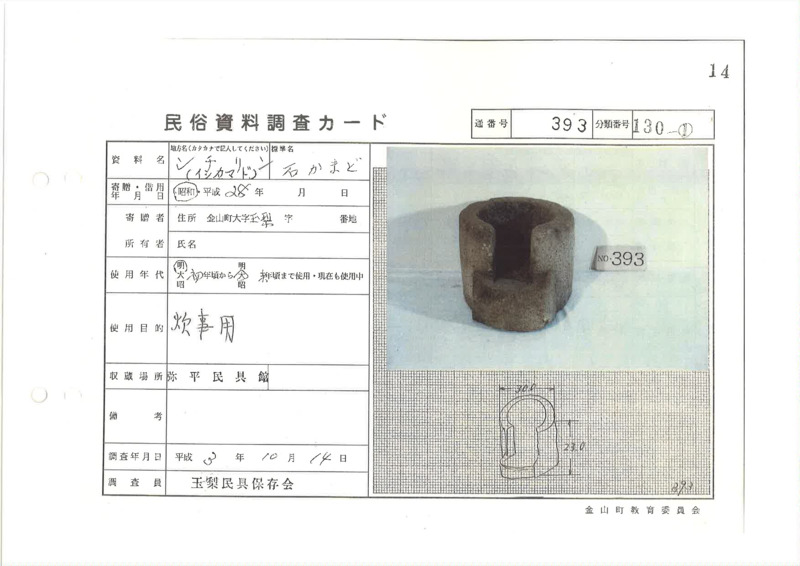 14
民俗資料調査カード
通番号 393 分類番号 130-①
資料名 地方名(カタカナで記入してください) 標準名
シチリン
(イシカマド) 石かまど
寄贈・借用年月日 昭和・平成 28 年 月 日
寄贈者 住所 金山町大字玉梨 字 番地
所有者 氏名
使用年代 明 大 昭 初年頃から 明 大 昭 年頃まで使用・現在も使用中
使用目的 炊事用
収蔵場所 弥平民具館
備考
調査年月日 平成 3 年 10 月 14 日
調査員 玉梨民具保存会
NO.393
30.0
23.0
393
金山町教育委員会